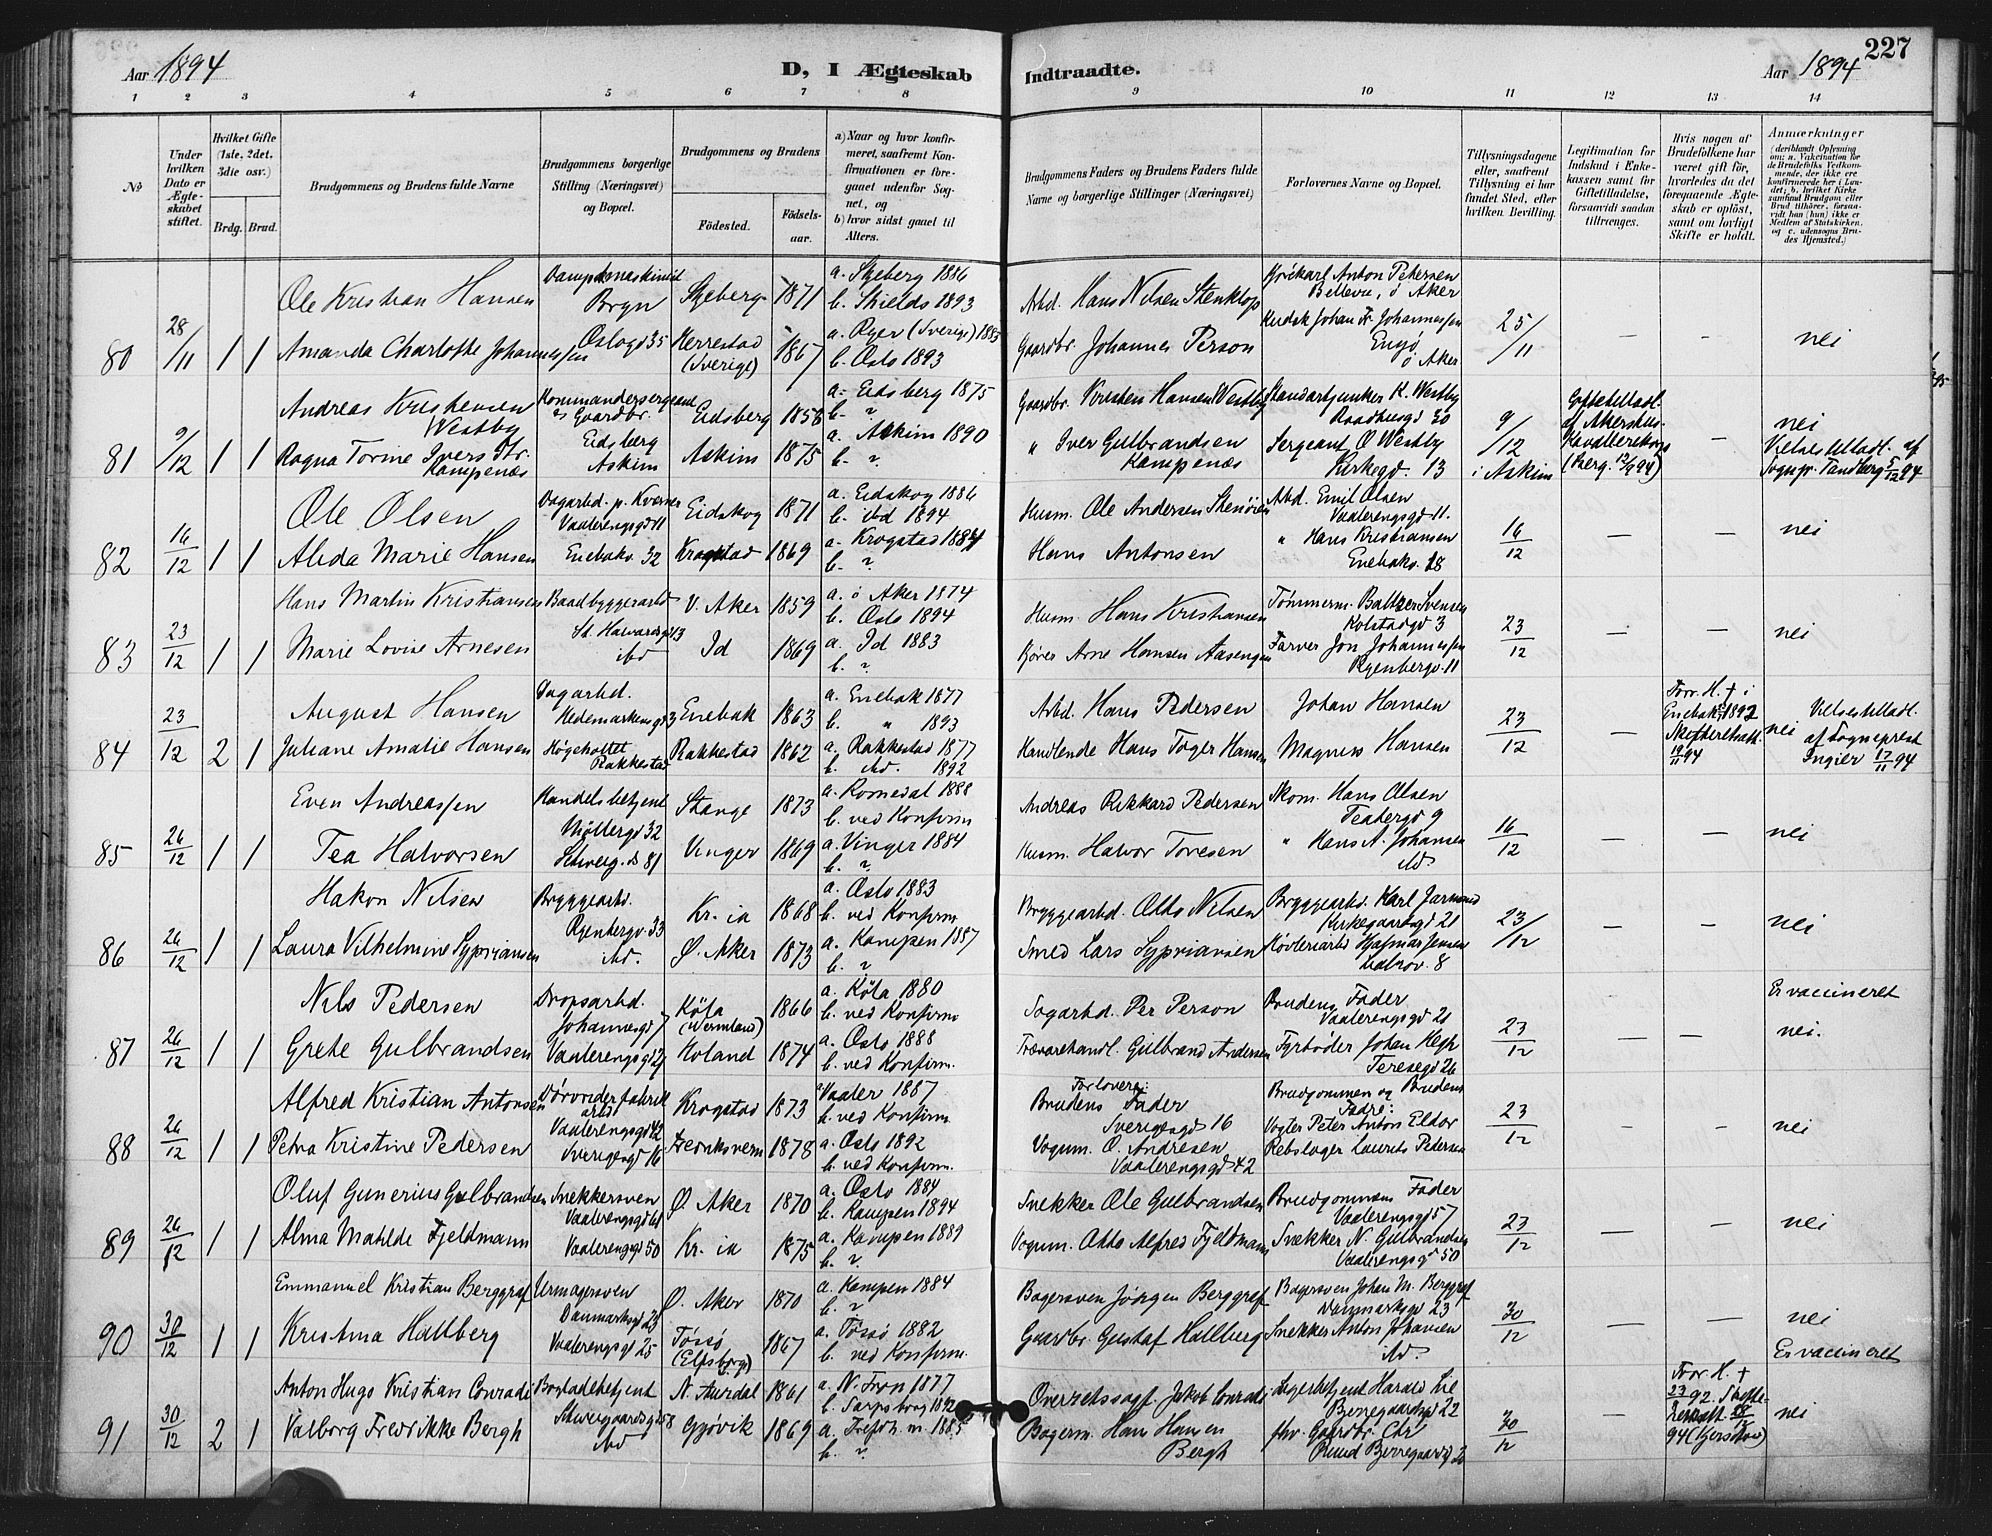 227
Aar 1894
D, I Ægteskab
Indtraadte.
Aar 1894
1 2 3 4 5 6 7 8 9 10 11 12 13 14
No
Under hvilken Dato er Ægteskabet stiftet.
Hvilket Gifte (1ste, 2det, 3die osv.)
Brdg. Brud.
Brudgommens og Brudens fulde Navne
Brudgommens borgerlige Stilling (Næringsvei) og Bopæl.
Brudgommens og Brudens
Födested.
Födselsaar.
a) Naar og hvor konfirmeret, saafremt Konfirmationen er foregaaet udenfor Sognet, og
b) hvor sidst gaaet til Alters.
Brudgommens Faders og Brudens Faders fulde Navne og borgerlige Stillinger (Næringsvei)
Forlovernes Navne og Bopæl.
Tillysningsdagene eller, saafremt Tillysning ei har fundet Sted, efter hvilken Bevilling.
Legitimation for Indskud i Enkekassen samt for Giftetilladelse, forsaavidt saadan tiltrænges.
Hvis nogen af Brudefolkene har været gift för, hvorledes da det foregaaende Ægteskab er oplöst, samt om lovligt Skifte er holdt.
Anmærkninger (deriblandt Oplysning om: a. Vakcination for de Brudefolks Vedkommende, der ikke ere konfirmerede her i Landet; b. hvilket Kirkesamfund Brudgom eller Brud tilhörer, forsaavidt han (hun) ikke er Medlem af Statskirken, og c. udensogns Brudes Hjemsted.)
80 28/11 1 1
Ole Kristian Hansen
Skjeberg 1871
a. Skjeberg 1886
b. Shields 1893
Arbd. Hans Nilsen Stenklop
Kjørekarl Anton Petersen
Bellevue, ö Aker
Amanda Charlotte Johannessen
Oslogd 35
Herrestad (Sverige) 1867
a. Ryer (Sverige) 1883
b. Oslo 1893
Gaardbr. Johannes Person
Kudsk Johan Fr. Johannessen
Engö
ö Aker
25/11 — — nei
81 9/12 1 1
Andreas Kristensen Westby
Kommandersergeant
og Gaardbr.
Eidsberg
Eidsberg 1858
a. Eidsberg 1875
b. ?
Gaardbr. Kristen Hansen Westby
Standartjunker K. Westby
Raadhusgd 30
Ragna Torine Ivers Dtr. Kampenæs
Askim
Askim 1875
a. Askim 1890
b. ?
" Iver Gulbrandsen Kampenæs
Sergeant O Westby
Kirkegd. 13
9/12 i Askim
Giftetilladl. af Akershus. Kavallerikorps (Berg. 12/9 94)
—
nei
Vielsestilladl. af Sognepr. Tandberg 5/12 94
82 16/12 1 1
Ole Olsen
Dagarbd. p. Kværner
Vaalerengsgd 11
Eidskog 1871
a. Eidskog 1886
b. ibd 1894
Husm. Ole Andersen Stenören
Arbd. Emil Olsen
Vaalerengsgd 11.
Alida Marie Hansen
Enebakv. 32
Krogstad 1869
a. Krogstad 1884
b. ?
Hans Antonsen
" Hans Kristiansen
Enebakv. 28
16/12 — — nei
83 23/12 1 1
Hans Martin Kristiansen
Baadbyggerarbd
St. Halvardsgd 13
V. Aker 1859
a. ö Aker 1874
b. Oslo 1894
Husm. Hans Kristiansen
Tømmerm. Baltzer Svensen
Kolstadgd 3
Marie Lovise Arnesen
ibd
Id 1869
a. Id 1883
b. ?
Kjörer Arne Hansen Aasengen
Farver Jon Johannessen
Ryenbergv. 11
23/12 — — nei
84 23/12 2 1
August Hansen
Dagarbd.
Hedemarkensgd 3
Enebak 1863
a. Enebak 1877
b. " 1893
Arbd. Hans Pedersen
Johan Hansen
Juliane Amalie Hansen
Høgeholtet Rakkestad
Rakkestad 1862
a. Rakkestad 1877
b. ibd. 1892
Handlende Hans Tøger Hansen
Magnus Hansen
23/12 —
Forr. H. † i Enebak 1892
Skifteretsatt. 19/11 94
nei
Vielsestilladl. af Sogneprest Ingier 17/11 94
85 26/12 1 1
Even Andreassen
Handelsbetjent
Møllergd 32
Stange 1873
a. Romedal 1888
b. ved Konfirm
Andreas Rikkard Pedersen
Skom. Hans Olsen
Teatergd 9
Tea Halvorsen
Schweig. d 81
Vinger 1869
a. Vinger 1884
b. ?
Husm. Halvor Toresen
" Hans A. Johansen
ibd.
16/12 — — nei
86 26/12 1 1
Hakon Nilsen
Bryggearbd.
Ryenbergv. 33
Kr. ia 1868
a. Oslo 1883
b. ved Konfirm
Bryggearbd. Otto Nilsen
Bryggearbd. Karl Jarmund
Kirkegaardsgd 21
Laura Vilhelmine Sypriansen
ibd.
Ø. Aker 1873
a. Kampen 1887
b. ?
Smed Lars Sypriansen
Høvleriarbd Hjalmar Jensen
Ladrov. 8
23/12 — — nei
87 26/12 1 1
Nils Pedersen
Dropsarbd.
Johannesgd 7
Köla (Wermland) 1866
a. Köla 1880
b. ved Konfirm
Sagarbd. Per Person
Brudens Fader
Vaalerengsgd 21
Er vaccineret
Grete Gulbrandsen
Vaalerengsgd 21
Høland 1874
a. Oslo 1888
b. ved Konfirm.
Trævarehandl. Gulbrand Andersen
Fyrbøder Johan Hegh
Teresegd 26
23/12 — — nei.
88 26/12 1 1
Alfred Kristian Antonsen
Dørvriderfabrik arbd
Vaalerengsgd 42
Krogstad 1873
a. Vaaler 1887
b. ved Konfirm
Forlovere:
Brudens Fader
Sverigesgd 16
Brudgommen og Brudens Fadre:
Vogter Peter Anton Eldor
Petra Kristine Pedersen
Sverigesgd 16
Fredriksvern 1878
a. Oslo 1892
b. ved Konfirm.
Vognm. O. Andresen
Vaalerengsgd 42
Rebslager Laurits Pedersen
23/12 - - nei
89 26/12 1 1
Oluf Gunerius Gulbrandsen
Snekkersven
Vaalerengsgd 61
Ø. Aker 1870
a. Oslo 1884
b. Kampen 1894
Snekker Ole Gulbrandsen
Brudgommens Fader
Vaalerengsgd 57
Alma Matilde Fjeldmann
Vaalerengsgd 50
Kr. ia 1875
a. Kampen 1889
b. ?
Vognm. Otto Alfred Fjeldmann
Snekker N. Gulbrandsen
Vaalerengsgd 50
23/12 — — nei
90 30/12 1 1
Emmanuel Kristian Berggraf
Urmagersven
Danmarksgd 23
Ø. Aker 1870
a. Kampen 1884
b. ?
Bagersven Jörgen Berggraf
Bagersven Johan M. Berggraf
Danmarksgd 23
Kristina Hallberg
Vaalerengsgd 25
Tössö (Elfsborgs) 1867
a. Tössö 1882
b. ved Konfirm.
Gaardbr. Gustaf Hallberg
Snekker Anton Johansen
ibd.
30/12 — — nei
Er vaccineret
91 30/12 2 1
Anton Hugo Kristian Conradi
Bogladebetjent
Schweigaardsgd 58
N. Aurdal 1861
a. N. Fron 1877
b. Sarpsborg 1892
Overretssagf. Jakob Conradi
Lagerbetjent Harald Lie
Bernegaardsgd 22
Valborg Fredrikke Bergh
ibd
Gjøvik 1869
a. Trefoldh. m. 1885
b. ?
Bagerm. Hans Hansen Bergh
fhv. Gaardbr. Chr Ruud
30/12 —
Forr. H. † 23/2 92. Skifteretsatt. 28/12 94
nei